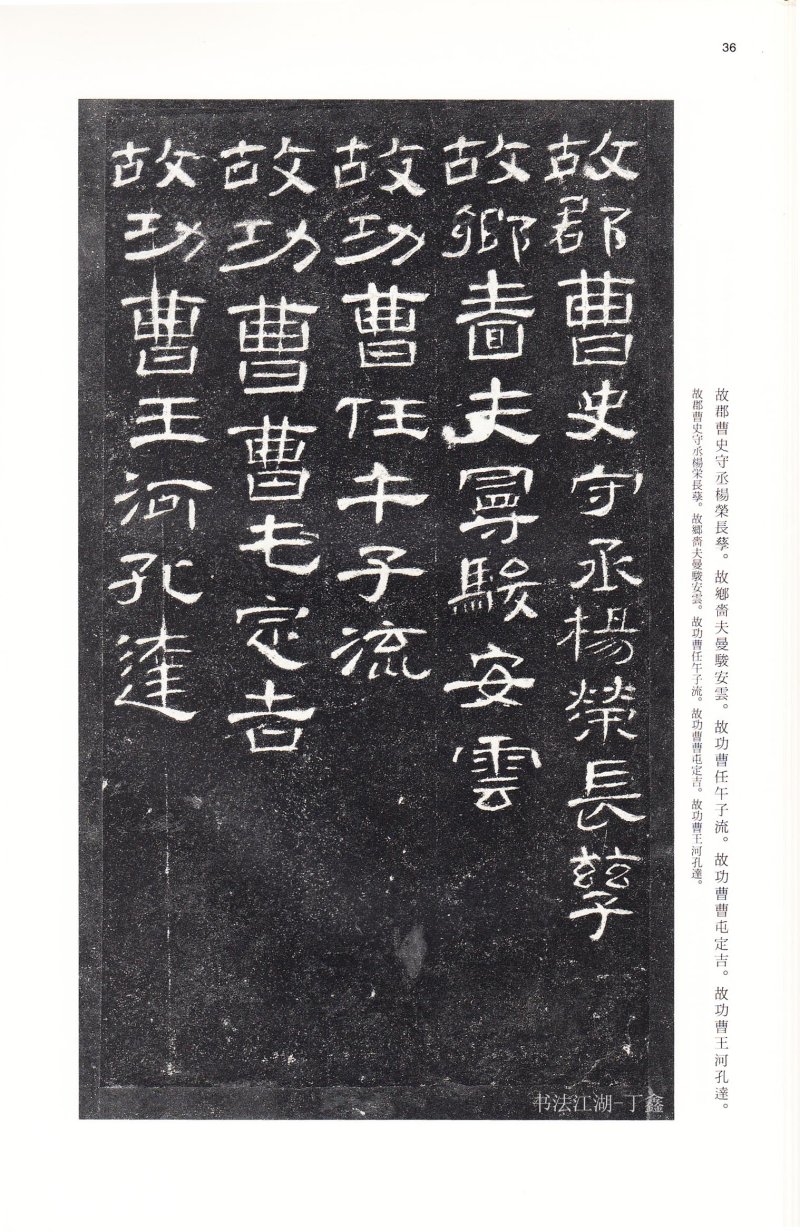 36
故郡曹史守丞楊榮長孳。故鄉嗇夫曼駿安雲。故功曹任午子流。故功曹曹屯定吉。故功曹王河孔達。
故郡曹史守丞楊栄長孳。故郷嗇夫曼駿安雲。故功曹任午子流。故功曹曹屯定吉。故功曹王河孔達。
故郡曹史守丞楊榮長孳
故鄉嗇夫曼駿安雲
故功曹任午子流
故功曹曹屯定吉
故功曹王河孔達
书法江湖-丁鑫